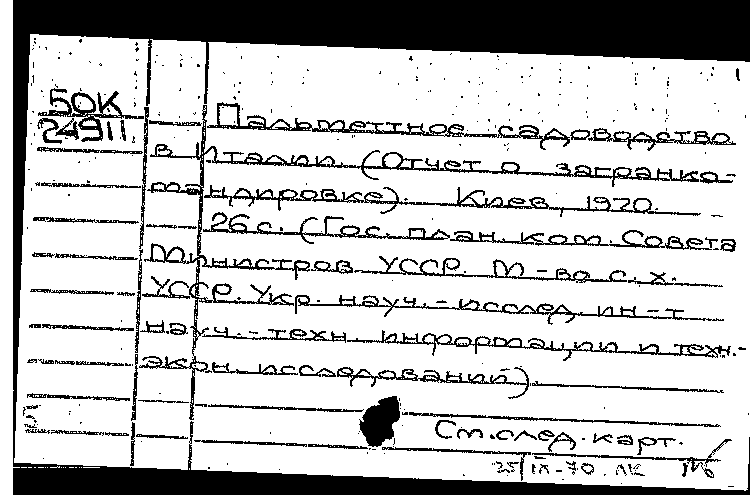 50К
24911
Пальметтное садоводство
в Италии. (Отчет о загранко-
мандировке). Киев, 1970.
26 с. (Гос. план. ком. Совета
Министров УССР. М-во с. х.
УССР. Укр. науч.-исслед. ин-т
науч.-техн. информации и техн.-
экон. исследований).
См. след. карт.
25/IX-70.